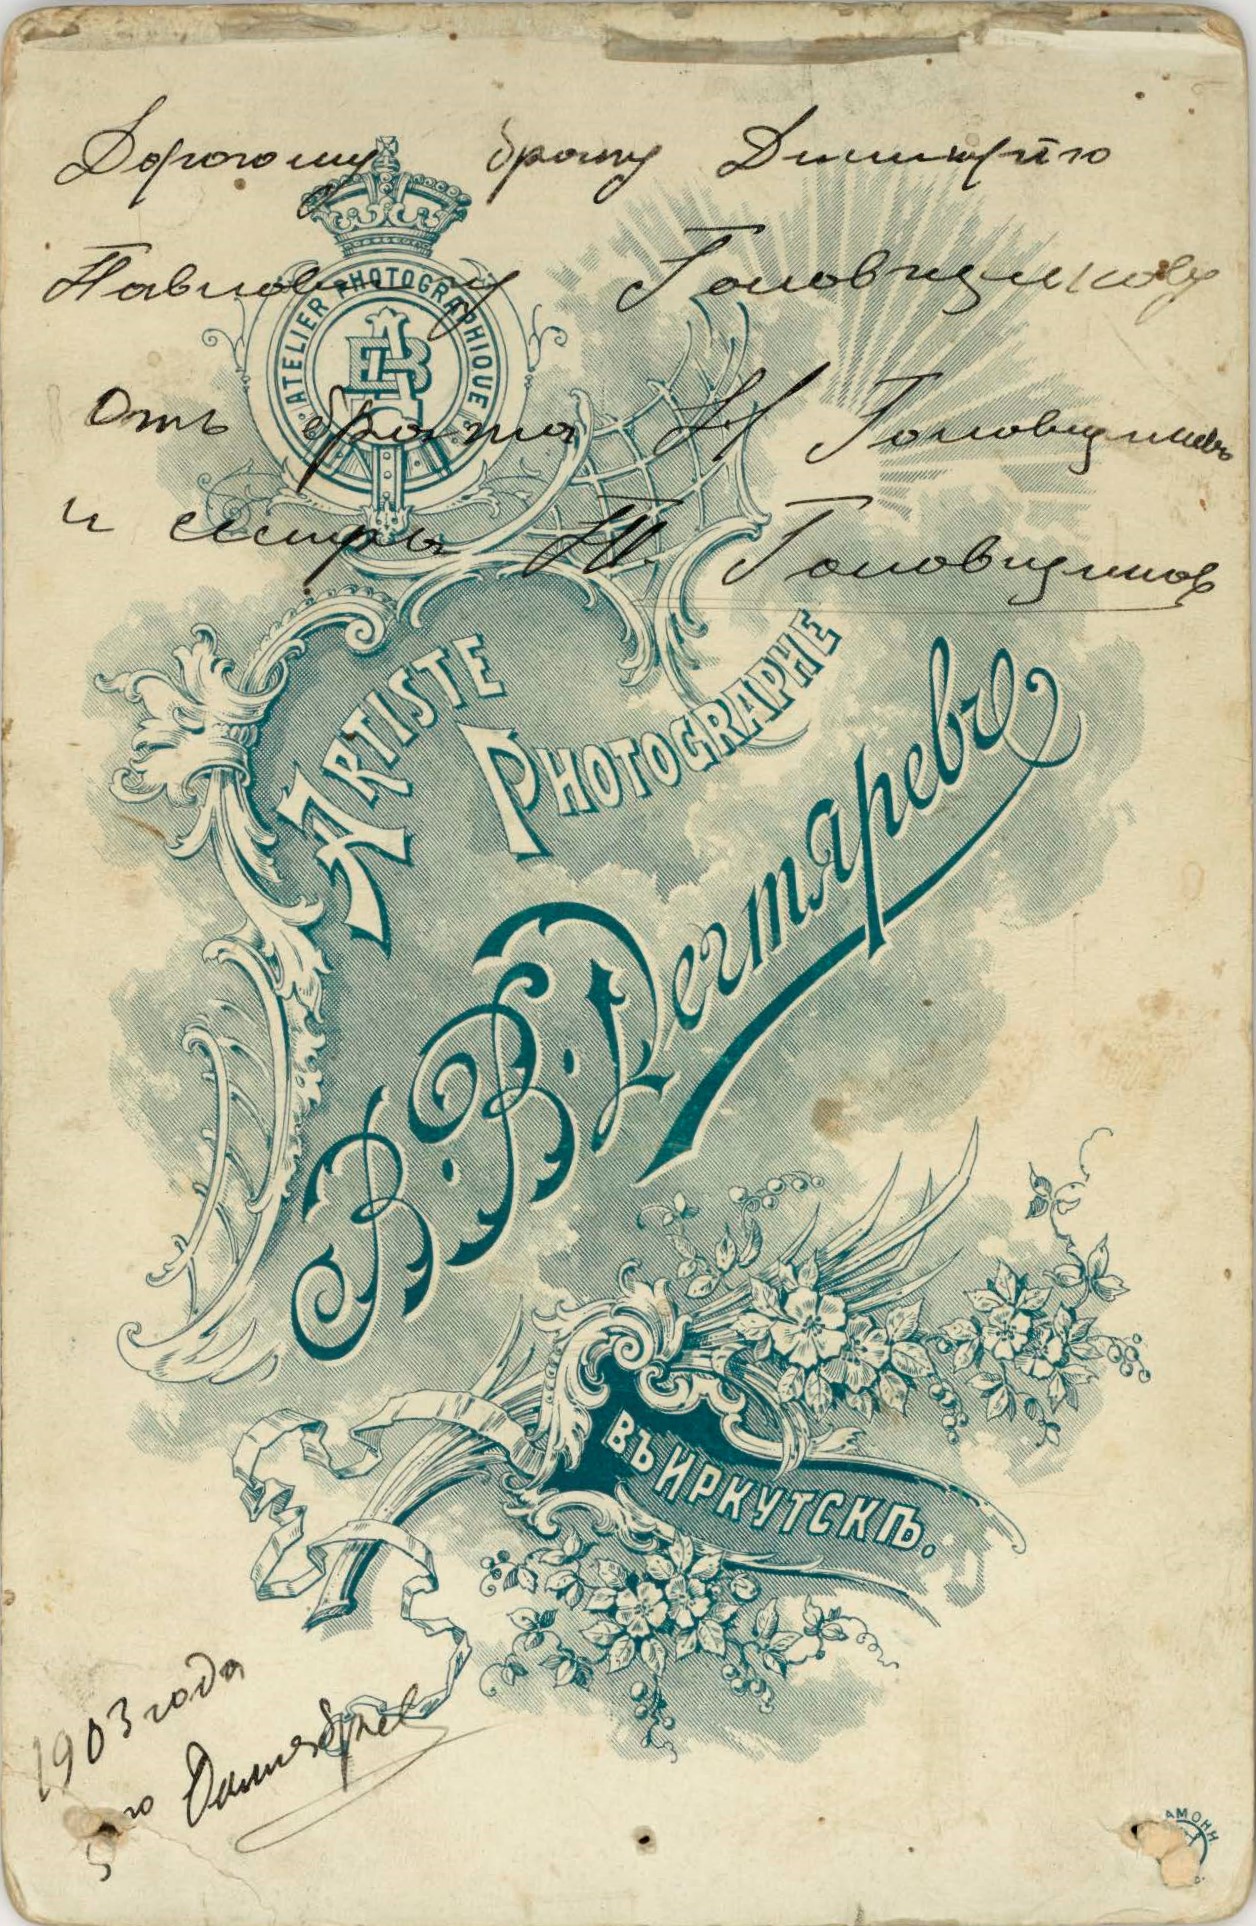 Дорогому брату Димитрію
Павловичу Головщикову
Отъ брата Н Головщиковъ
и сестры Т. Головщиков
ATELIER PHOTOGRAPHIQUE
ARTISTE
PHOTOGRAPHE
В. В. Дегтяревъ
ВЪ ИРКУТСКѢ.
1903 года
5 го Октября